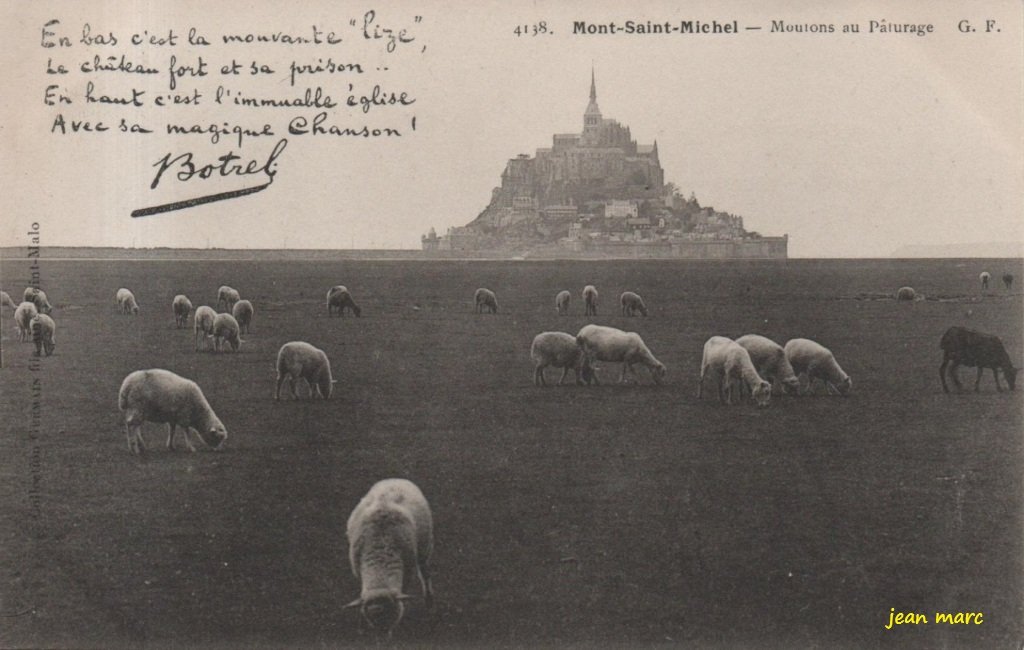 En bas c'est la mouvante "lize",
Le château fort et sa prison ..
En haut c'est l'immuable église
Avec sa magique Chanson !
Botrel
4138. Mont-Saint-Michel — Moutons au Pâturage G. F.
Collection GERMAIN fils, Saint-Malo
jean marc